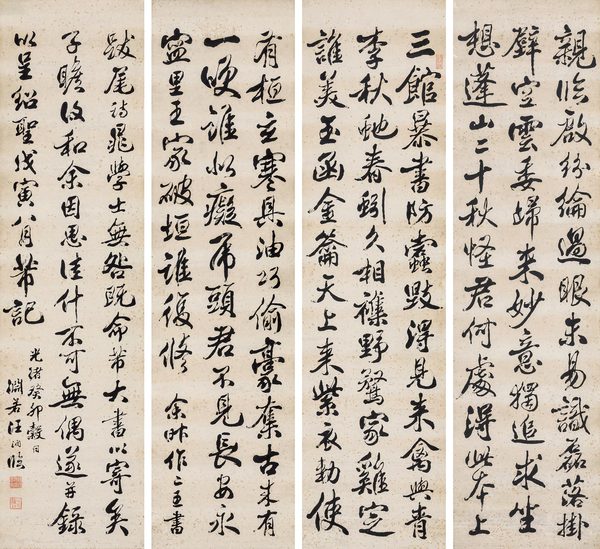 親臨啟紛綸過眼未易識磊落掛
壁空雲委歸來妙意獨追求坐
想蓬山二十秋怪君何處得此本上
三館暴書防蠹毀得見來禽與青
李秋蛇春蚓久相襍野鶩家雞定
誰美玉函金籥天上來紫衣勅使
有桓玄寒具油巧偷豪奪古來有
一咲誰似癡虎頭君不見長安永
寧里王家破垣誰復修 余昨作二王書
跋尾詩晁學士無咎既命芾大書以寄矣
子瞻復和余因思佳什不可無偶遂并錄
以呈紹聖戊寅八月芾記
光緒癸卯穀日
淵若汪洵臨